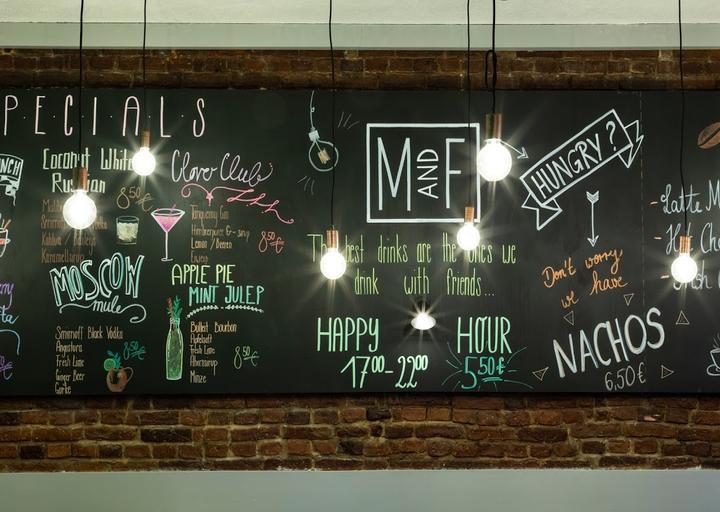 PECIALS
Coconut White
Russian
8,50€
Clover Club
Tanqueray Gin
Lemon / Beeren
Eiweiß
8,50€
MOSCOW
mule
Smirnoff Black Vodka
Angostura
Fresh Lime
Ginger Beer
Gurke
8,50€
APPLE PIE
MINT JULEP
Bulleit Bourbon
Apfelsaft
Fresh Lime
Minze
8,50€
M AND F
best drinks are the ones we
drink with friends...
HAPPY HOUR
17⁰⁰-22⁰⁰
5,50€
HUNGRY?
Don't worry
we have
NACHOS
6,50€
- Latte M